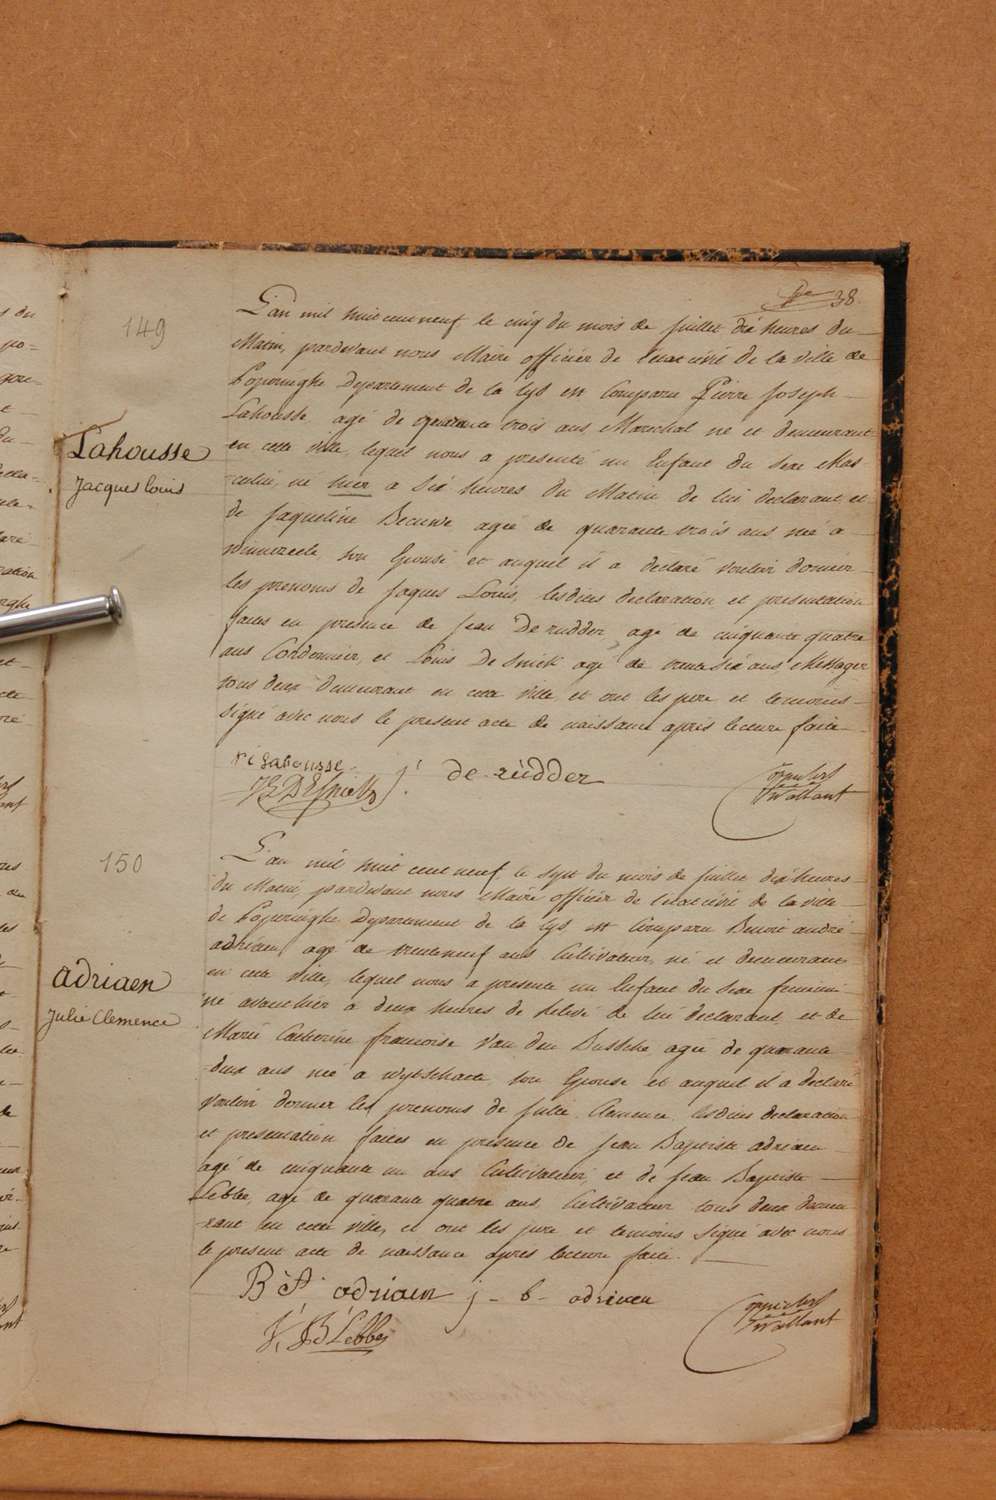 38.
149
L'an mil huit cent neuf le cinq du mois de juillet dix heures du
Matin, pardevant nous Maire officier de l'etat civil de la ville de
Poperinghe Departement de la Lys est Comparu Pierre Joseph
Lahousse, agé de quarante trois ans Marechal né et demeurant
Lahousse
Jacques Louis
en cette ville, lequel nous a presenté un Enfant du sexe Mas
culin, né hier a six heures du Matin de lui declarant et
de Jaqueline Becuwe agée de quarante trois ans née a
son Epouse et auquel il a declaré vouloir donner
les prenoms de Jaques Louis, lesdites declaration et presentation
faites en presence de Jean De rudder, agé de cinquante quatre
ans Cordonnier, et Louis De Snick agé de trente six ans, Messager
tous deux Demeurant en cette ville, et ont les pere et temoins
signé avec nous le present acte de naissance après lecture faite
Lahousse
j. de rúdder
150
L'an mil huit cent neuf le sept du mois de juillet dix heures
du Matin, pardevant nous Maire officier de l'etat civil de la ville
de Poperinghe Departement de la Lys, est Comparu Benoit andré
adriaen agé de trente neuf ans Cultivateur, né et demeurant
adriaen
Julie Clemence
en cette ville, lequel nous a presenté un Enfant du sexe feminin
né avant hier a deux heures de relevé de lui declarant, et de
Marie Catherine francoise Van den Bussche agée de quarante
deux ans née a wytschaete son Epouse et auquel il a declaré
vouloir donner les prenoms de Julie Clemence, lesdites declaration
et presentation faites en presence de Jean Baptiste adriaen
agé de cinquante un ans Cultivateur, et de Jean Baptiste
Lebbe, agé de quarante quatre ans, Cultivateur tous deux demeu
rant en cette ville, et ont les pere et temoins signé avec nous
le present acte de naissance apres lecture faite.
B A adriaen j - b - adriaen
J, B Lebbe